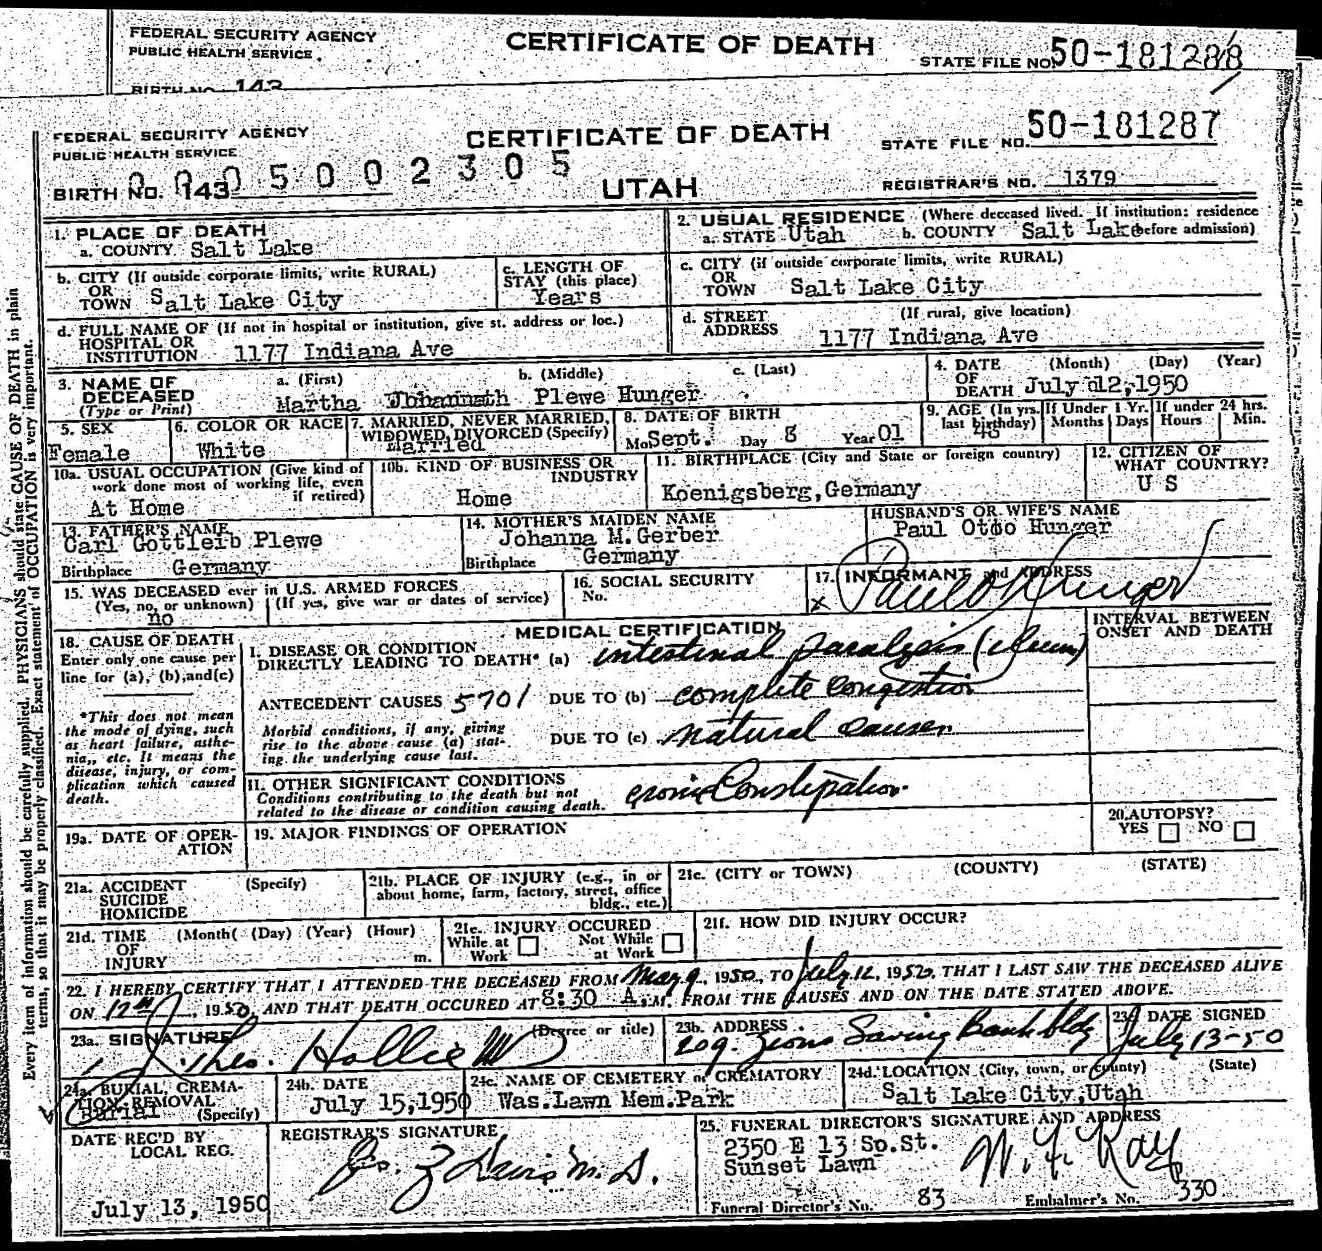 FEDERAL SECURITY AGENCY
PUBLIC HEALTH SERVICE
CERTIFICATE OF DEATH
STATE FILE NO. 50-181288
BIRTH NO. 143
FEDERAL SECURITY AGENCY
PUBLIC HEALTH SERVICE
CERTIFICATE OF DEATH
STATE FILE NO. 50-181287
005002305
BIRTH NO. 143
UTAH
REGISTRAR'S NO. 1379
1. PLACE OF DEATH
a. COUNTY Salt Lake
2. USUAL RESIDENCE (Where deceased lived. If institution: residence before admission)
a. STATE Utah b. COUNTY Salt Lake
b. CITY (If outside corporate limits, write RURAL)
OR
TOWN Salt Lake City
c. LENGTH OF
STAY (this place)
Years
c. CITY (if outside corporate limits, write RURAL)
OR
TOWN Salt Lake City
d. FULL NAME OF (If not in hospital or institution, give st. address or loc.)
HOSPITAL OR
INSTITUTION 1177 Indiana Ave
d. STREET (If rural, give location)
ADDRESS
1177 Indiana Ave
3. NAME OF
DECEASED
(Type or Print)
a. (First) b. (Middle) c. (Last)
Martha Plewe Hunger
4. DATE (Month) (Day) (Year)
OF
DEATH July 12, 1950
5. SEX
Female
6. COLOR OR RACE
White
7. MARRIED, NEVER MARRIED,
WIDOWED, DIVORCED (Specify)
Married
8. DATE OF BIRTH
Mo Sept. Day 8 Year 01
9. AGE (In yrs.
last birthday)
48
If Under 1 Yr.
Months Days
If under 24 hrs.
Hours Min.
10a. USUAL OCCUPATION (Give kind of
work done most of working life, even
if retired)
At Home
10b. KIND OF BUSINESS OR
INDUSTRY
Home
11. BIRTHPLACE (City and State or foreign country)
Koenigsberg, Germany
12. CITIZEN OF
WHAT COUNTRY?
U S
13. FATHER'S NAME
Carl Gottleib Plewe
Birthplace Germany
14. MOTHER'S MAIDEN NAME
Johanna M. Gerber
Birthplace Germany
HUSBAND'S OR WIFE'S NAME
Paul Otto Hunger
15. WAS DECEASED ever in U.S. ARMED FORCES
(Yes, no, or unknown) (If yes, give war or dates of service)
no
16. SOCIAL SECURITY
No.
17. INFORMANT and ADDRESS
x Paul O Hunger
MEDICAL CERTIFICATION
INTERVAL BETWEEN
ONSET AND DEATH
18. CAUSE OF DEATH
Enter only one cause per
line for (a), (b), and (c)
I. DISEASE OR CONDITION
DIRECTLY LEADING TO DEATH* (a) intestinal paralysis (ileum)
ANTECEDENT CAUSES 5701 DUE TO (b) complete congestion
Morbid conditions, if any, giving
rise to the above cause (a) stat-
ing the underlying cause last.
DUE TO (c) natural causes
*This does not mean
the mode of dying, such
as heart failure, asthe-
nia, etc. It means the
disease, injury, or com-
plication which caused
death.
II. OTHER SIGNIFICANT CONDITIONS
Conditions contributing to the death but not
related to the disease or condition causing death.
cronic Constipation.
19a. DATE OF OPER-
ATION
19. MAJOR FINDINGS OF OPERATION
20. AUTOPSY?
YES NO
21a. ACCIDENT (Specify)
SUICIDE
HOMICIDE
21b. PLACE OF INJURY (e.g., in or
about home, farm, factory, street, office
bldg., etc.)
21c. (CITY OR TOWN) (COUNTY) (STATE)
21d. TIME (Month) (Day) (Year) (Hour)
OF
INJURY m.
21e. INJURY OCCURED
While at Work
Not While at Work
21f. HOW DID INJURY OCCUR?
22. I HEREBY CERTIFY THAT I ATTENDED THE DECEASED FROM May 9, 1950, TO July 12, 1950, THAT I LAST SAW THE DECEASED ALIVE
ON 12th, 1950, AND THAT DEATH OCCURED AT 8:30 A.M. FROM THE CAUSES AND ON THE DATE STATED ABOVE.
23a. SIGNATURE (Degree or title)
Hollie MD
23b. ADDRESS
209 Zions Saving Bank bldg
23c. DATE SIGNED
July 13-50
24a. BURIAL, CREMA-
TION, REMOVAL
Burial (Specify)
24b. DATE
July 15, 1950
24c. NAME OF CEMETERY or CREMATORY
Was. Lawn Mem. Park
24d. LOCATION (City, town, or county) (State)
Salt Lake City, Utah
DATE REC'D BY
LOCAL REG.
July 13, 1950
REGISTRAR'S SIGNATURE
M.D.
25. FUNERAL DIRECTOR'S SIGNATURE AND ADDRESS
2350 E 13 So. St.
Sunset Lawn
Funeral Director's No. 83
Embalmer's No. 330
Every item of information should be carefully supplied. PHYSICIANS should state CAUSE OF DEATH in plain
terms, so that it may be properly classified. Exact statement of OCCUPATION is very important.